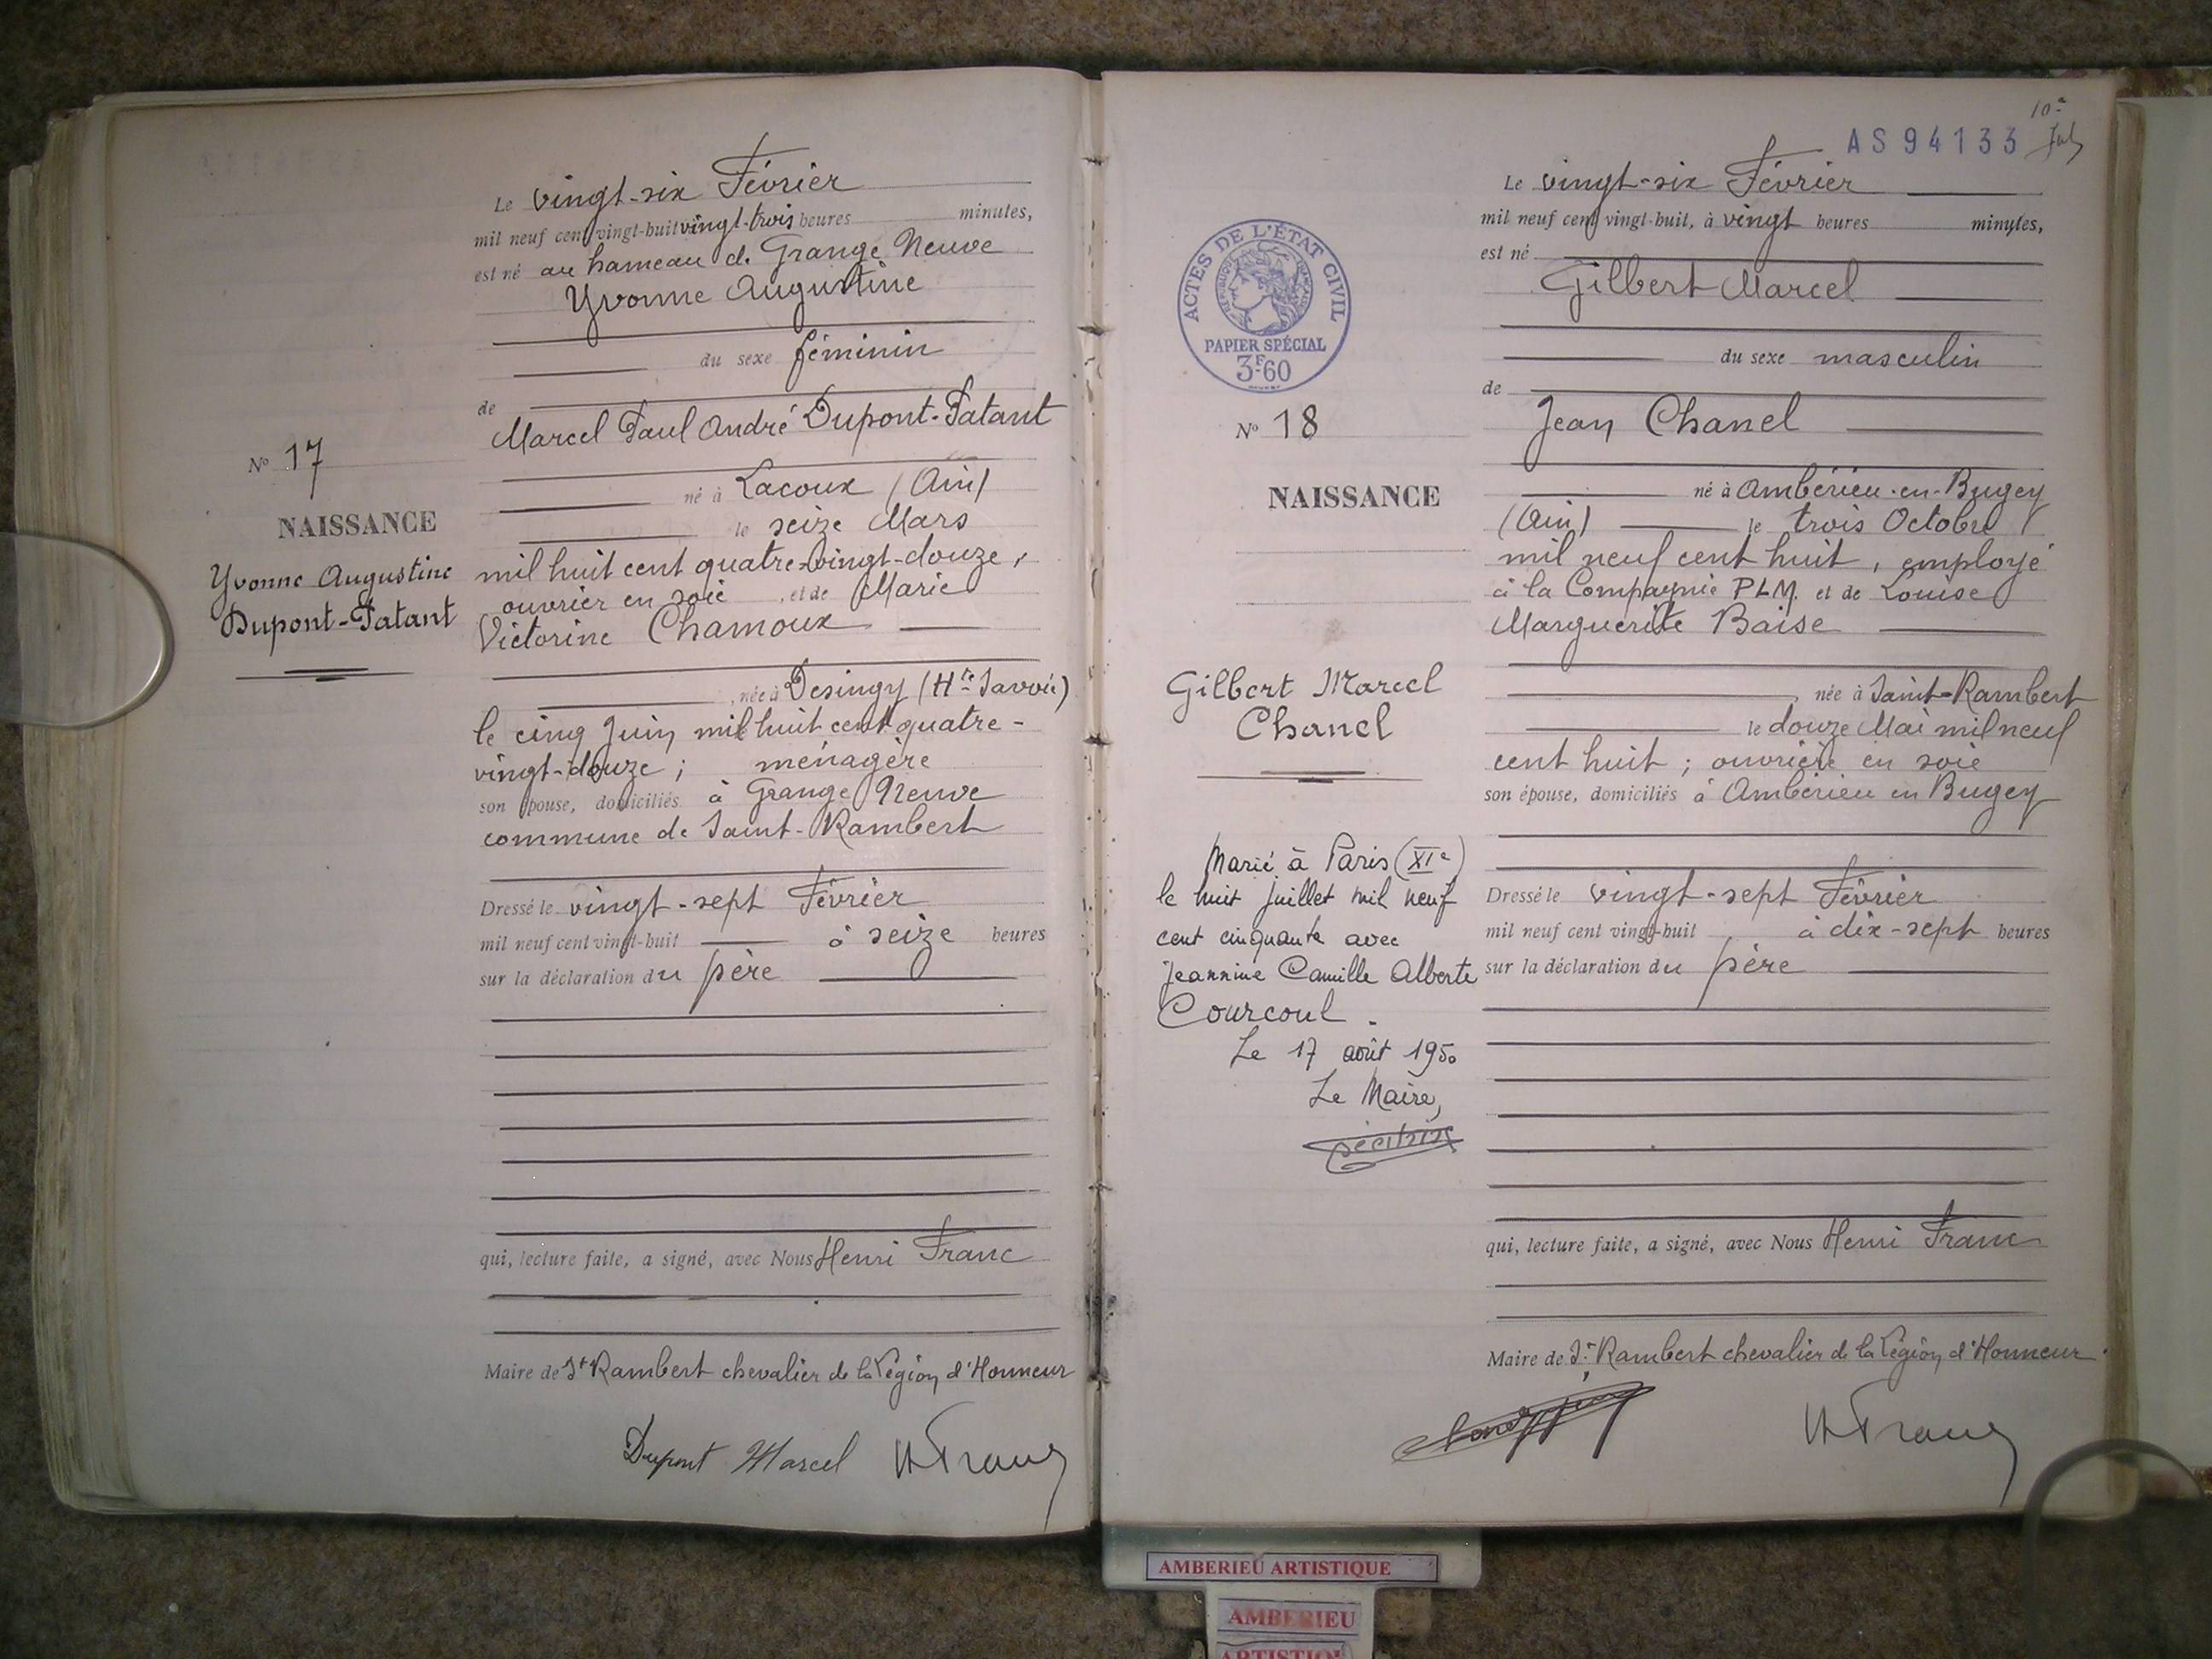 Le vingt-six Février
mil neuf cent vingt-huit vingt-trois heures minutes,
est né au hameau de Grange Neuve
Yvonne Augustine
du sexe féminin
de
Marcel Paul André Dupont-Patant
N° 17
né à Lacoux (Ain)
NAISSANCE
le seize Mars
Yvonne Augustine
Dupont-Patant
mil huit cent quatre-vingt-douze,
ouvrier en soie, et de Marie
Victorine Chamoux
, née à Desingy (Hte Savoie)
le cinq Juin mil huit cent quatre-
vingt-douze; ménagère
son épouse, domiciliés à Grange Neuve
commune de Saint-Rambert
Dressé le vingt-sept Février
mil neuf cent vingt-huit à seize heures
sur la déclaration du père
qui, lecture faite, a signé, avec Nous Henri Franc
Maire de St Rambert chevalier de la Légion d'Honneur
Dupont Marcel HFranc
10e
AS 94133
Le vingt-six Février
mil neuf cent vingt-huit, à vingt heures minutes,
est né
Gilbert Marcel
ACTES DE L'ÉTAT CIVIL
RÉPUBLIQUE FRANÇAISE
PAPIER SPÉCIAL
3F60
du sexe masculin
de
Jean Chanel
N° 18
NAISSANCE
né à Ambérieu-en-Bugey
(Ain) le trois Octobre
mil neuf cent huit, employé
à la Compagnie PLM. et de Louise
Marguerite Baise
Gilbert Marcel
Chanel
, née à Saint-Rambert
le douze Mai mil neuf
cent huit; ouvrière en soie
son épouse, domiciliés à Ambérieu en Bugey
Marié à Paris (XIe)
le huit juillet mil neuf
cent cinquante avec
Jeannine Camille Alberte
Courcoul.
Le 17 août 1950
Le Maire,
Dressé le vingt-sept Février
mil neuf cent vingt-huit à dix-sept heures
sur la déclaration du père
qui, lecture faite, a signé, avec Nous Henri Franc
Maire de St Rambert chevalier de la Légion d'Honneur.
HFranc
AMBERIEU ARTISTIQUE
AMBERIEU
ARTISTIQUE